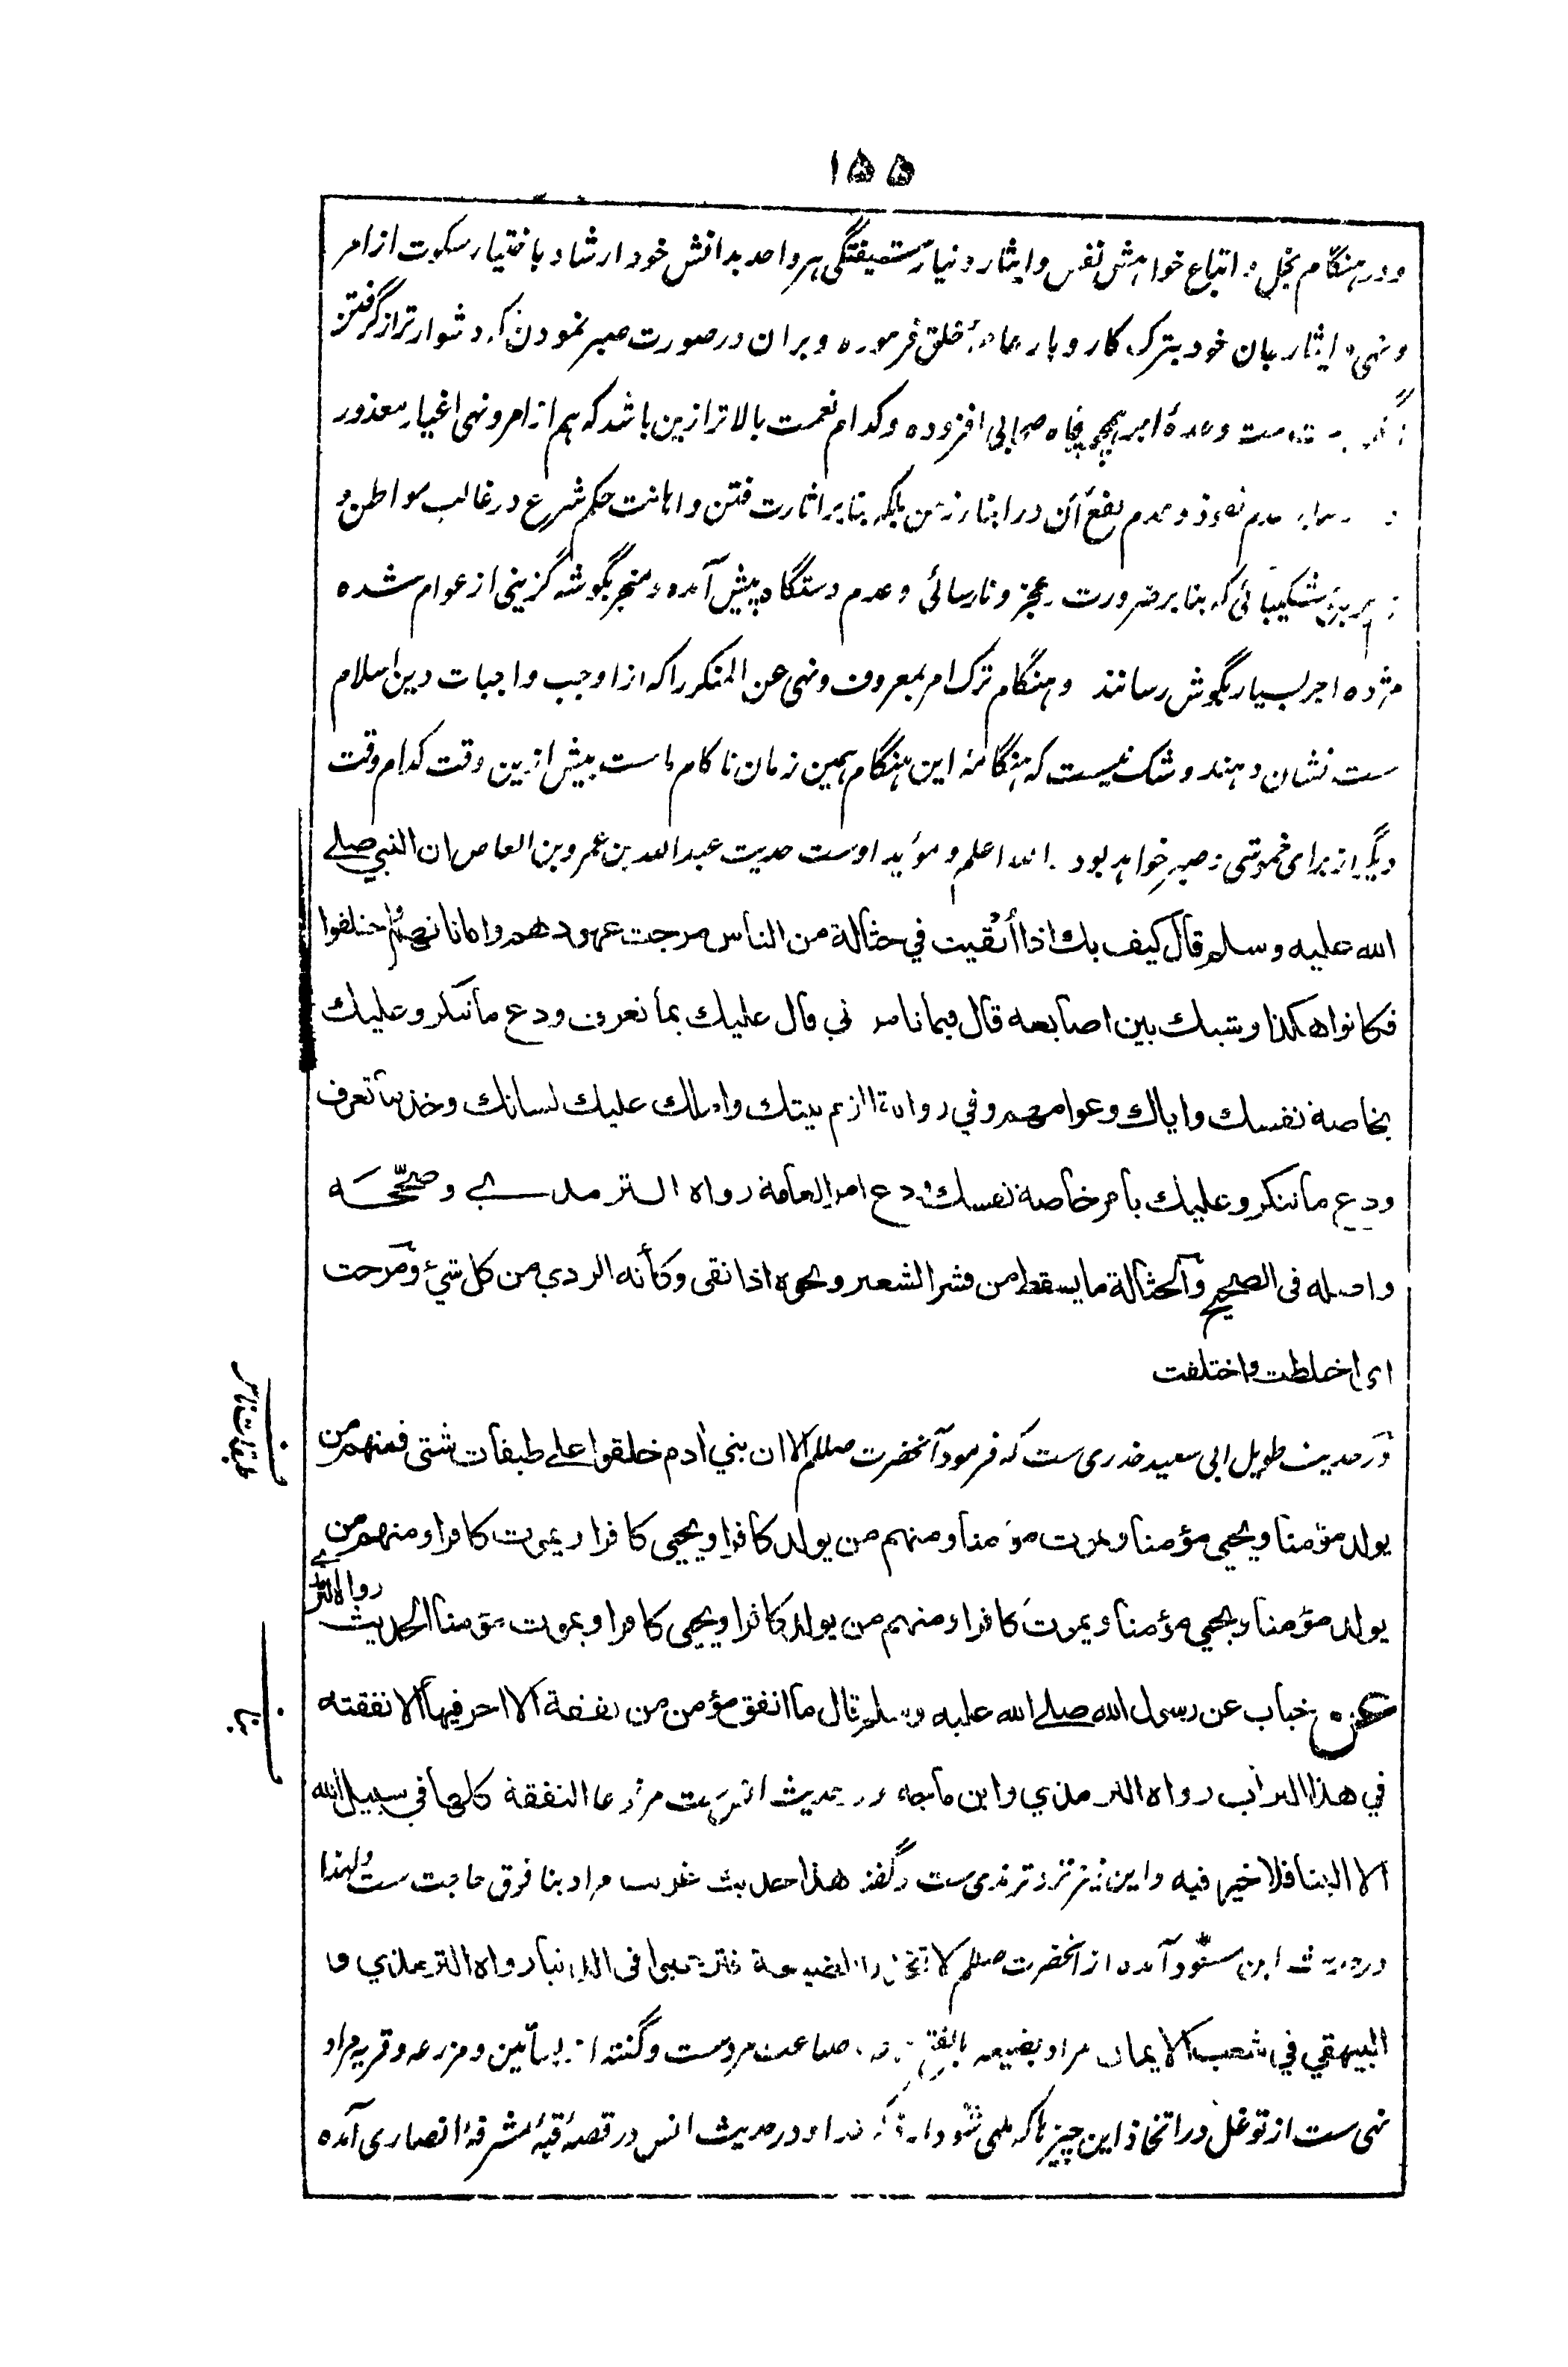 ۱۵۵
و در هنگام بخل و اتباع خواهش نفس و ایثار دنیا و شیفتگی هر واحد بدانش خود ارشاد باختیار سکوت از امر
و نهی و ایثار بان خود بترک کار و بار عامهٔ خلق فرموده و بران در صورت صبر نمودن که دشوارتر از گرفتن
ست وعدهٔ اجر همچو پنجاه صحابی افزوده و کدام نعمت بالاتر ازین باشد که هم از امر و نهی اغیار معذور
عدم نفوذ و عدم نفع آن در ابناء زمن بلکه بنابر اثارت فتن و اهانت حکم شرع در غالب مواطن و
هم برین شکیبائی که بنابر ضرورت عجز و نارسائی و عدم دستگاه پیش آمده و منجر بگوشه گزینی از عوام شده
مژده اجر بسیار بگوش رسانند و هنگام ترک امر بمعروف و نهی عن المنکر را که از اوجب واجبات دین اسلام
ست نشان دهند و شک نیست که هنگامهٔ این هنگام همین زمان ناکام ماست پیش ازین وقت کدام وقت
دیگر از برای خموشی و صبر خواهد بود و الله اعلم و مؤید اوست حدیث عبد الله بن عمرو بن العاص ان النبي صلى
الله عليه وسلم قال كيف بك اذا أبقيت في حثالة من الناس مرجت عهودهم واماناتهم واختلفوا
فكانوا هكذا وشبك بين اصابعه قال فبما تأمرني قال عليك بما تعرف ودع ما تنكر وعليك
بخاصة نفسك واياك وعوامهم وفي رواية الزم بيتك واملك عليك لسانك وخذ بما تعرف
ودع ما تنكر وعليك بأمر خاصة نفسك ودع امر العامة رواه الترمذي وصححه
واصله فى الصحيح والحثالة ما يسقط من قشر الشعير ونحوه اذا نقى وكأنه الردي من كل شيء ومرجت
اي اختلطت واختلفت
و در حدیث طویل ابی سعید خدری ست که فرمود آنحضرت صللم الا ان بني أدم خلقوا على طبقات شتى فمنهم من
يولد مؤمنا ويحيى مؤمنا ويموت مؤمنا ومنهم من يولد كافرا ويحيى كافرا ويموت كافرا ومنهم من
يولد مؤمنا ويحيى مؤمنا ويموت كافرا ومنهم من يولد كافرا ويحيى كافرا ويموت مؤمنا الحديث رواه الترمذي
عن خباب عن رسول الله صلى الله عليه وسلم قال ما انفق مؤمن من نفقة الا اجر فيها الا نفقته
في هذا التراب رواه الترمذي وابن ماجه و در حدیث انس ست مرفوعا النفقة كلها في سبيل الله
الا البنا فلا خير فيه و این نیز نزد ترمذی ست و گفته هذا حديث غريب مراد بنا فوق حاجت ست و لهذا
و در حدیث ابن مسعود آمده از آنحضرت صللم لا تتخذوا الضيعة فترغبوا فى الدنيا رواه الترمذي و
البيهقي في شعب الايمان مراد بضیعه بالفتح صناعت مردست و گفته‌اند بساتین و مزرعه و قریه مراد
نهی ست از توغل در اتخاذ این چیزها که ملهی شود از ذکر خدا و در حدیث انس در قصهٔ قبهٔ مشرفهٔ انصاری آمده
بنا